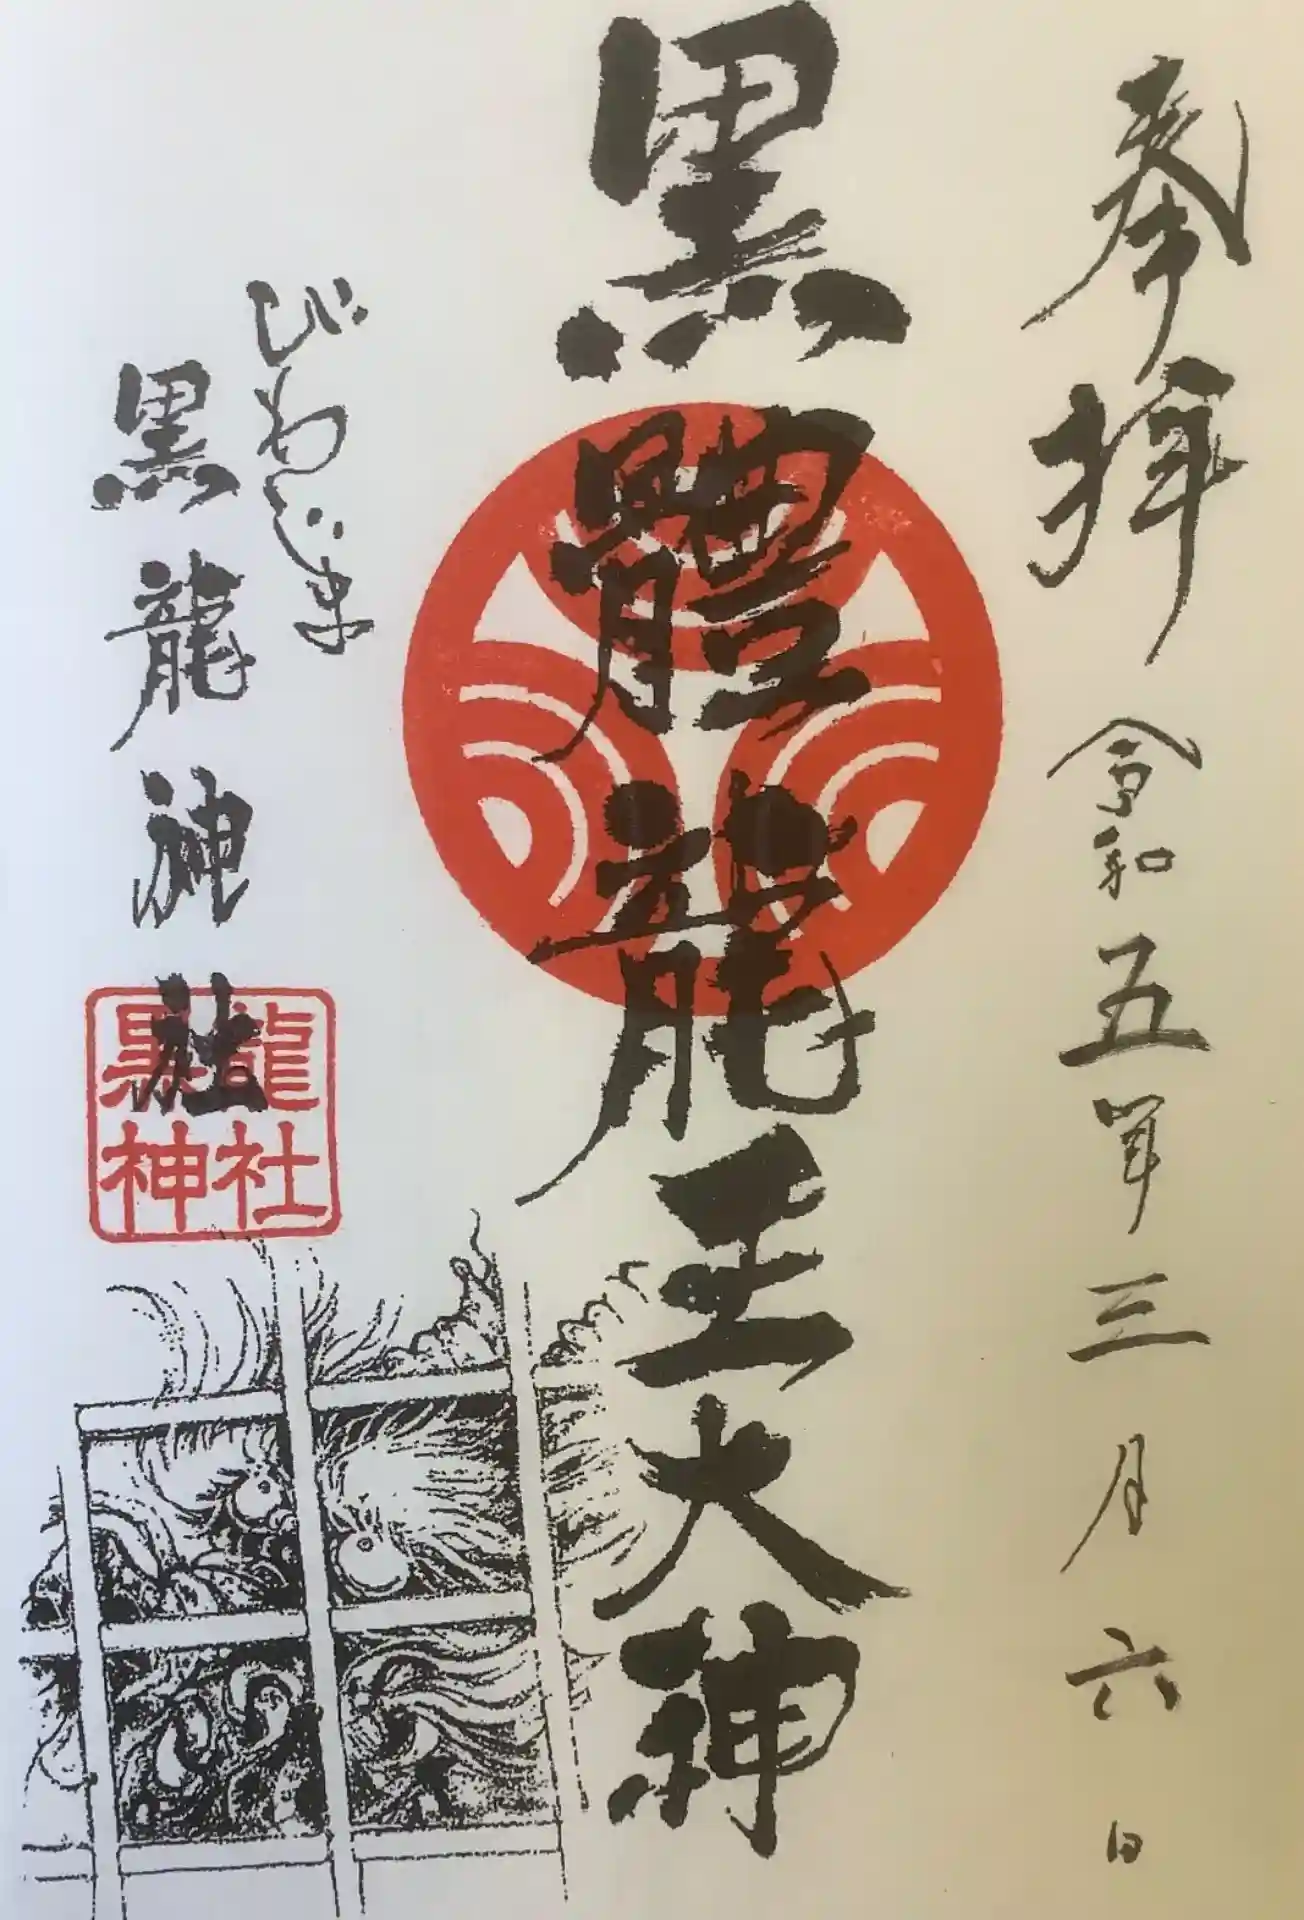 奉拝 令和五年三月六日
黒體龍王大神
びわじま
黒龍神社
黒龍
神社